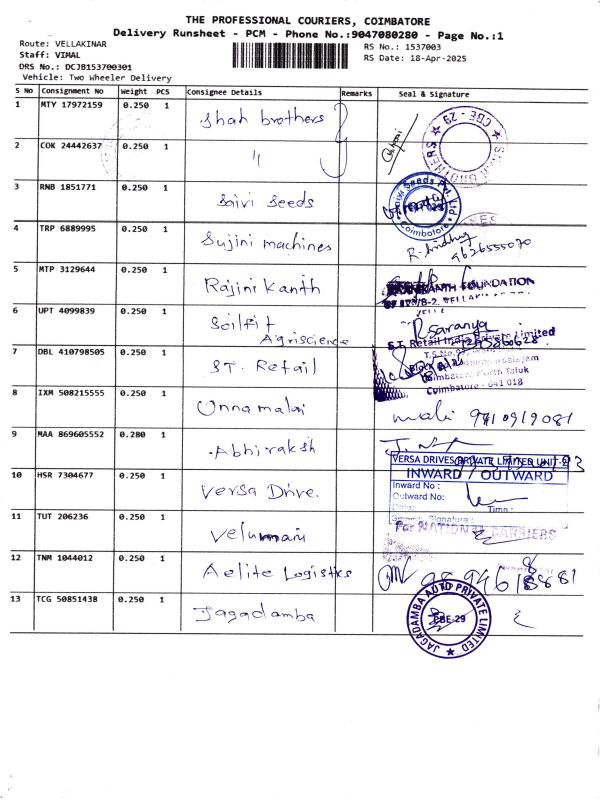 THE PROFESSIONAL COURIERS, COIMBATORE
Delivery Runsheet - PCM - Phone No.:9047080280 - Page No.:1
Route: VELLAKINAR
RS No.: 1537003
Staff: VIMAL
RS Date: 18-Apr-2025
DRS No.: DCJB153700301
Vehicle: Two Wheeler Delivery
S No Consignment No Weight PCS Consignee Details Remarks Seal & Signature
1 MTY 17972159 0.250 1 Shah brothers
CBE - 29
2 COK 24442637 0.250 1 "
3 RNB 1851771 0.250 1 Saivi Seeds
Saivi Seeds Pvt. Ltd
Coimbatore
4 TRP 6889995 0.250 1 Sujini machines
9626555070
5 MTP 3129644 0.250 1 Rajini Kanth
FOUNDATION
6 UPT 4099839 0.250 1 Soilfit Agriscience
R. Saranya
7 DBL 410798505 0.250 1 ST. Retail
S.T. Retail India Private Limited
Coimbatore North Taluk
Coimbatore - 641 018
8 IXM 508215555 0.250 1 Unnamalai
mali 9410919081
9 MAA 869605552 0.280 1 Abhiraksh
10 HSR 7304677 0.250 1 Versa Drive.
VERSA DRIVES PRIVATE LIMITED UNIT-2
INWARD / OUTWARD
Inward No :
Outward No:
Date: Time :
Signature :
11 TUT 206236 0.250 1 Velumani
For NATIONAL CARRIERS
12 TNM 1044012 0.250 1 Aelite Logistics
13 TCG 50851438 0.250 1 Jagadamba
JAGADAMBA AUTO PRIVATE LIMITED
CBE-29